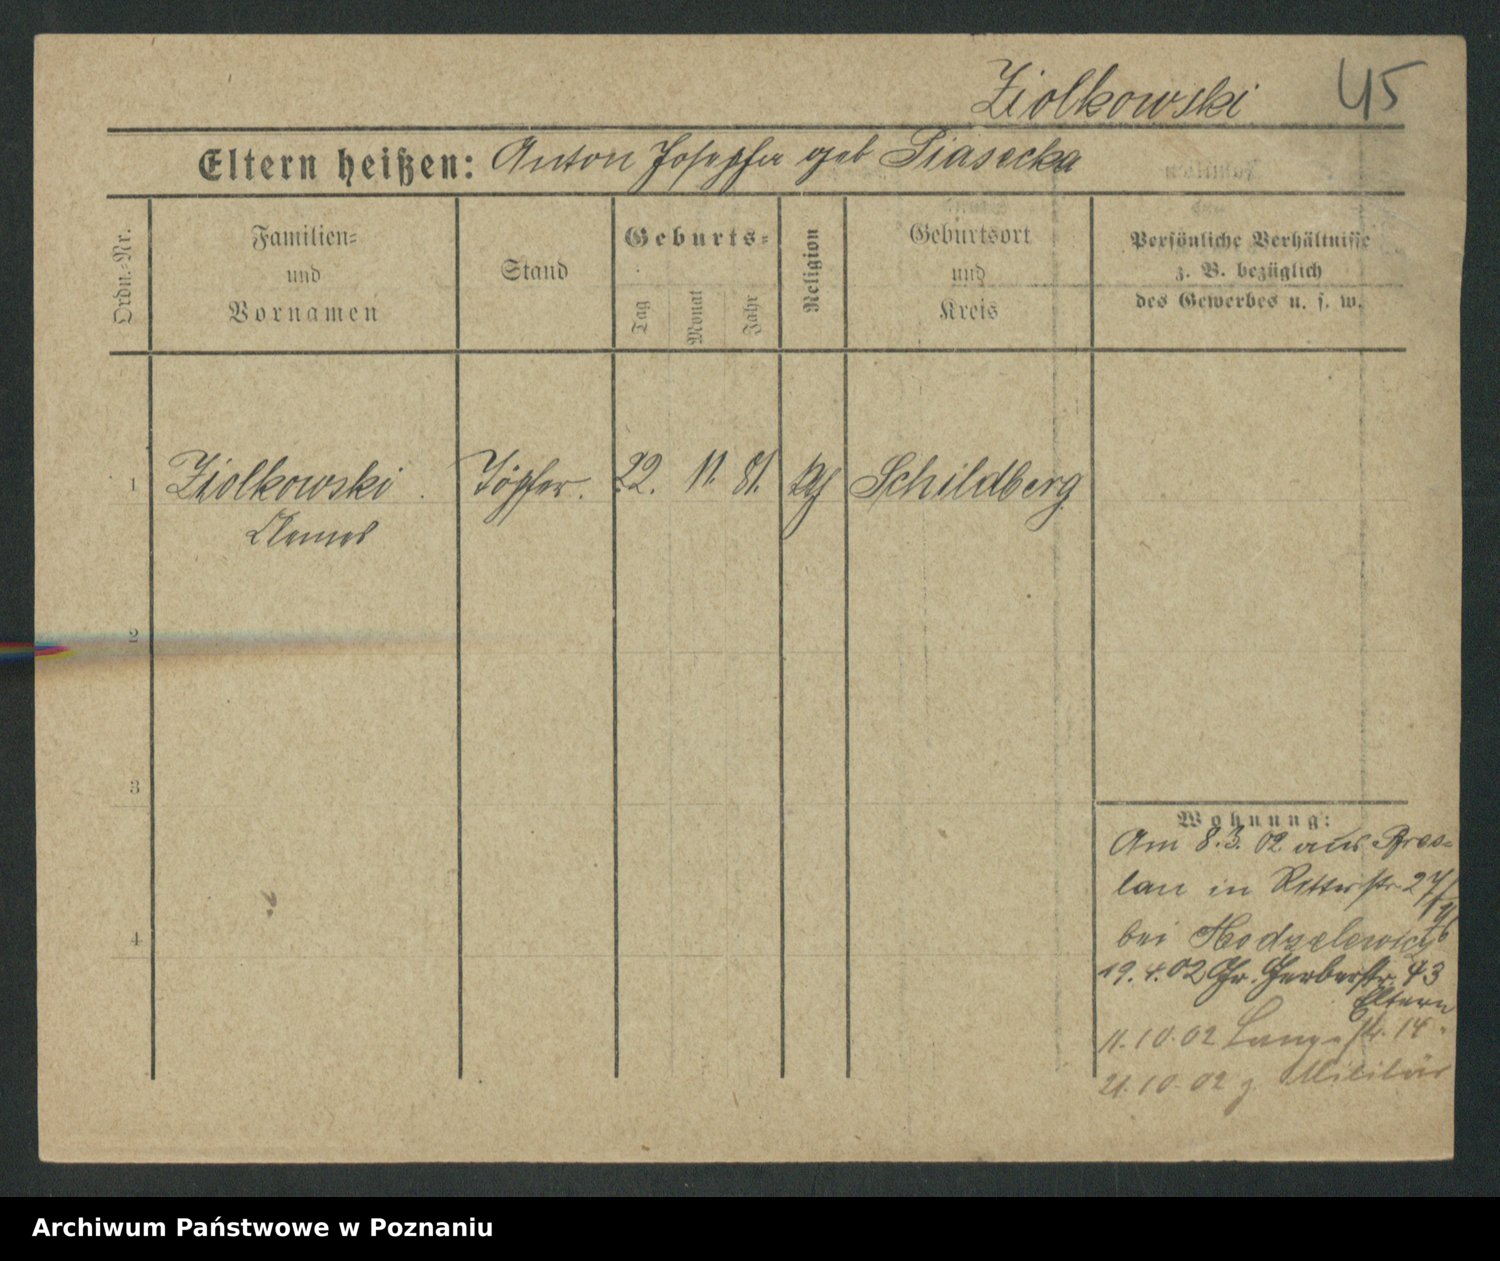 Ziolkowski 45
Eltern heißen: Anton Josepha geb Piasecka
Ordn.-Nr.
Familien-
und
Vornamen
Stand
Geburts-
Tag
Monat
Jahr
Religion
Geburtsort
und
Kreis
Persönliche Verhältnisse
z. B. bezüglich
des Gewerbes u. s. w.
1 Ziolkowski Töpfer. 22. 11. 81. Schildberg
2
3
4
Wohnung:
Am 8.3. 02 aus Bres-
lau in Ritterstr 27/
bei
19. 4. 02 Gr. Gerberstr. 43
Eltern
11. 10. 02 Langestr. 14
21. 10. 02 z Militär
Archiwum Państwowe w Poznaniu